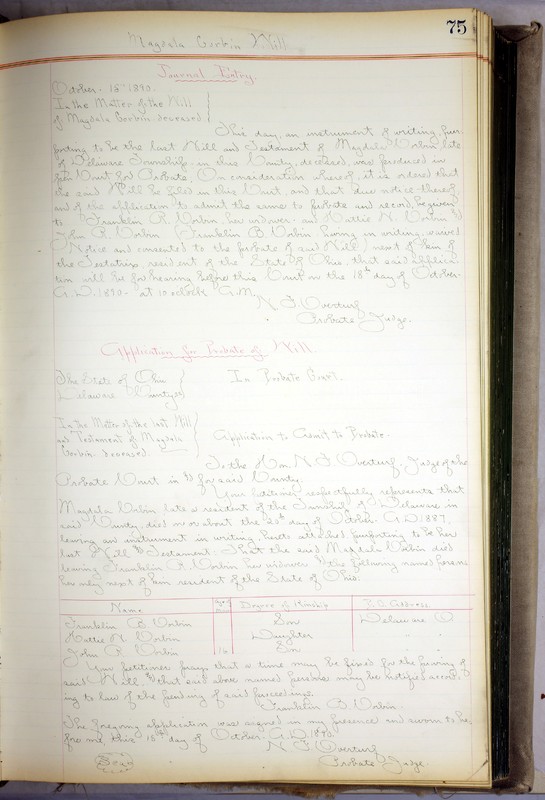 75
Magdala Corbin Will
Journal Entry.
October 15th 1890.
In the Matter of the Will
of Magdala Corbin deceased
This day, an instrument of writing, pur-
porting to be the Last Will and Testament of Magdala Corbin late
of Delaware Township in this County, deceased, was produced in
open Court for Probate. On consideration whereof, it is ordered that
the said Will be filed in this Court, and that due notice thereof,
and of the application to admit the same to probate and record, be given
to Franklin R. Corbin her widower and Hattie N. Corbin &
John R. Corbin (Franklin B. Corbin having in writing, waived
Notice and consented to the probate of said Will) next of kin of
the Testatrix, resident of the State of Ohio, that said applica-
tion will be for hearing before this Court on the 18th day of October
A.D. 1890 at 10 o'clock A.M.
N. F. Overturf
Probate Judge.
Application for Probate of Will.
The State of Ohio
Delaware County ss
In Probate Court.
In the Matter of the last Will
and Testament of Magdala
Corbin deceased.
Application to Admit to Probate.
To the Hon. N. F. Overturf, Judge of the
Probate Court in & for said County.
Your petitioner respectfully represents that
Magdala Corbin late a resident of the Township of Delaware in
said County, died on or about the day of October A.D. 1887,
leaving an instrument in writing, hereto attached purporting to be her
last Will & Testament. That the said Magdala Corbin died
leaving Franklin R. Corbin her widower & the following named persons
her only next of kin resident of the State of Ohio.
Name Degree of Kinship P.O. Address.
Franklin B. Corbin Son Delaware O
Hattie N. Corbin Daughter " "
John R. Corbin 16 Son " "
Your petitioner prays that a time may be fixed for the proving of
said Will & that said above named persons may be notified accord-
ing to law of the pending of said proceedings.
Franklin B. Corbin
The foregoing application was signed in my presence and sworn to be-
fore me, this 15th day of October A.D. 1890.
N. F. Overturf
Seal Probate Judge.